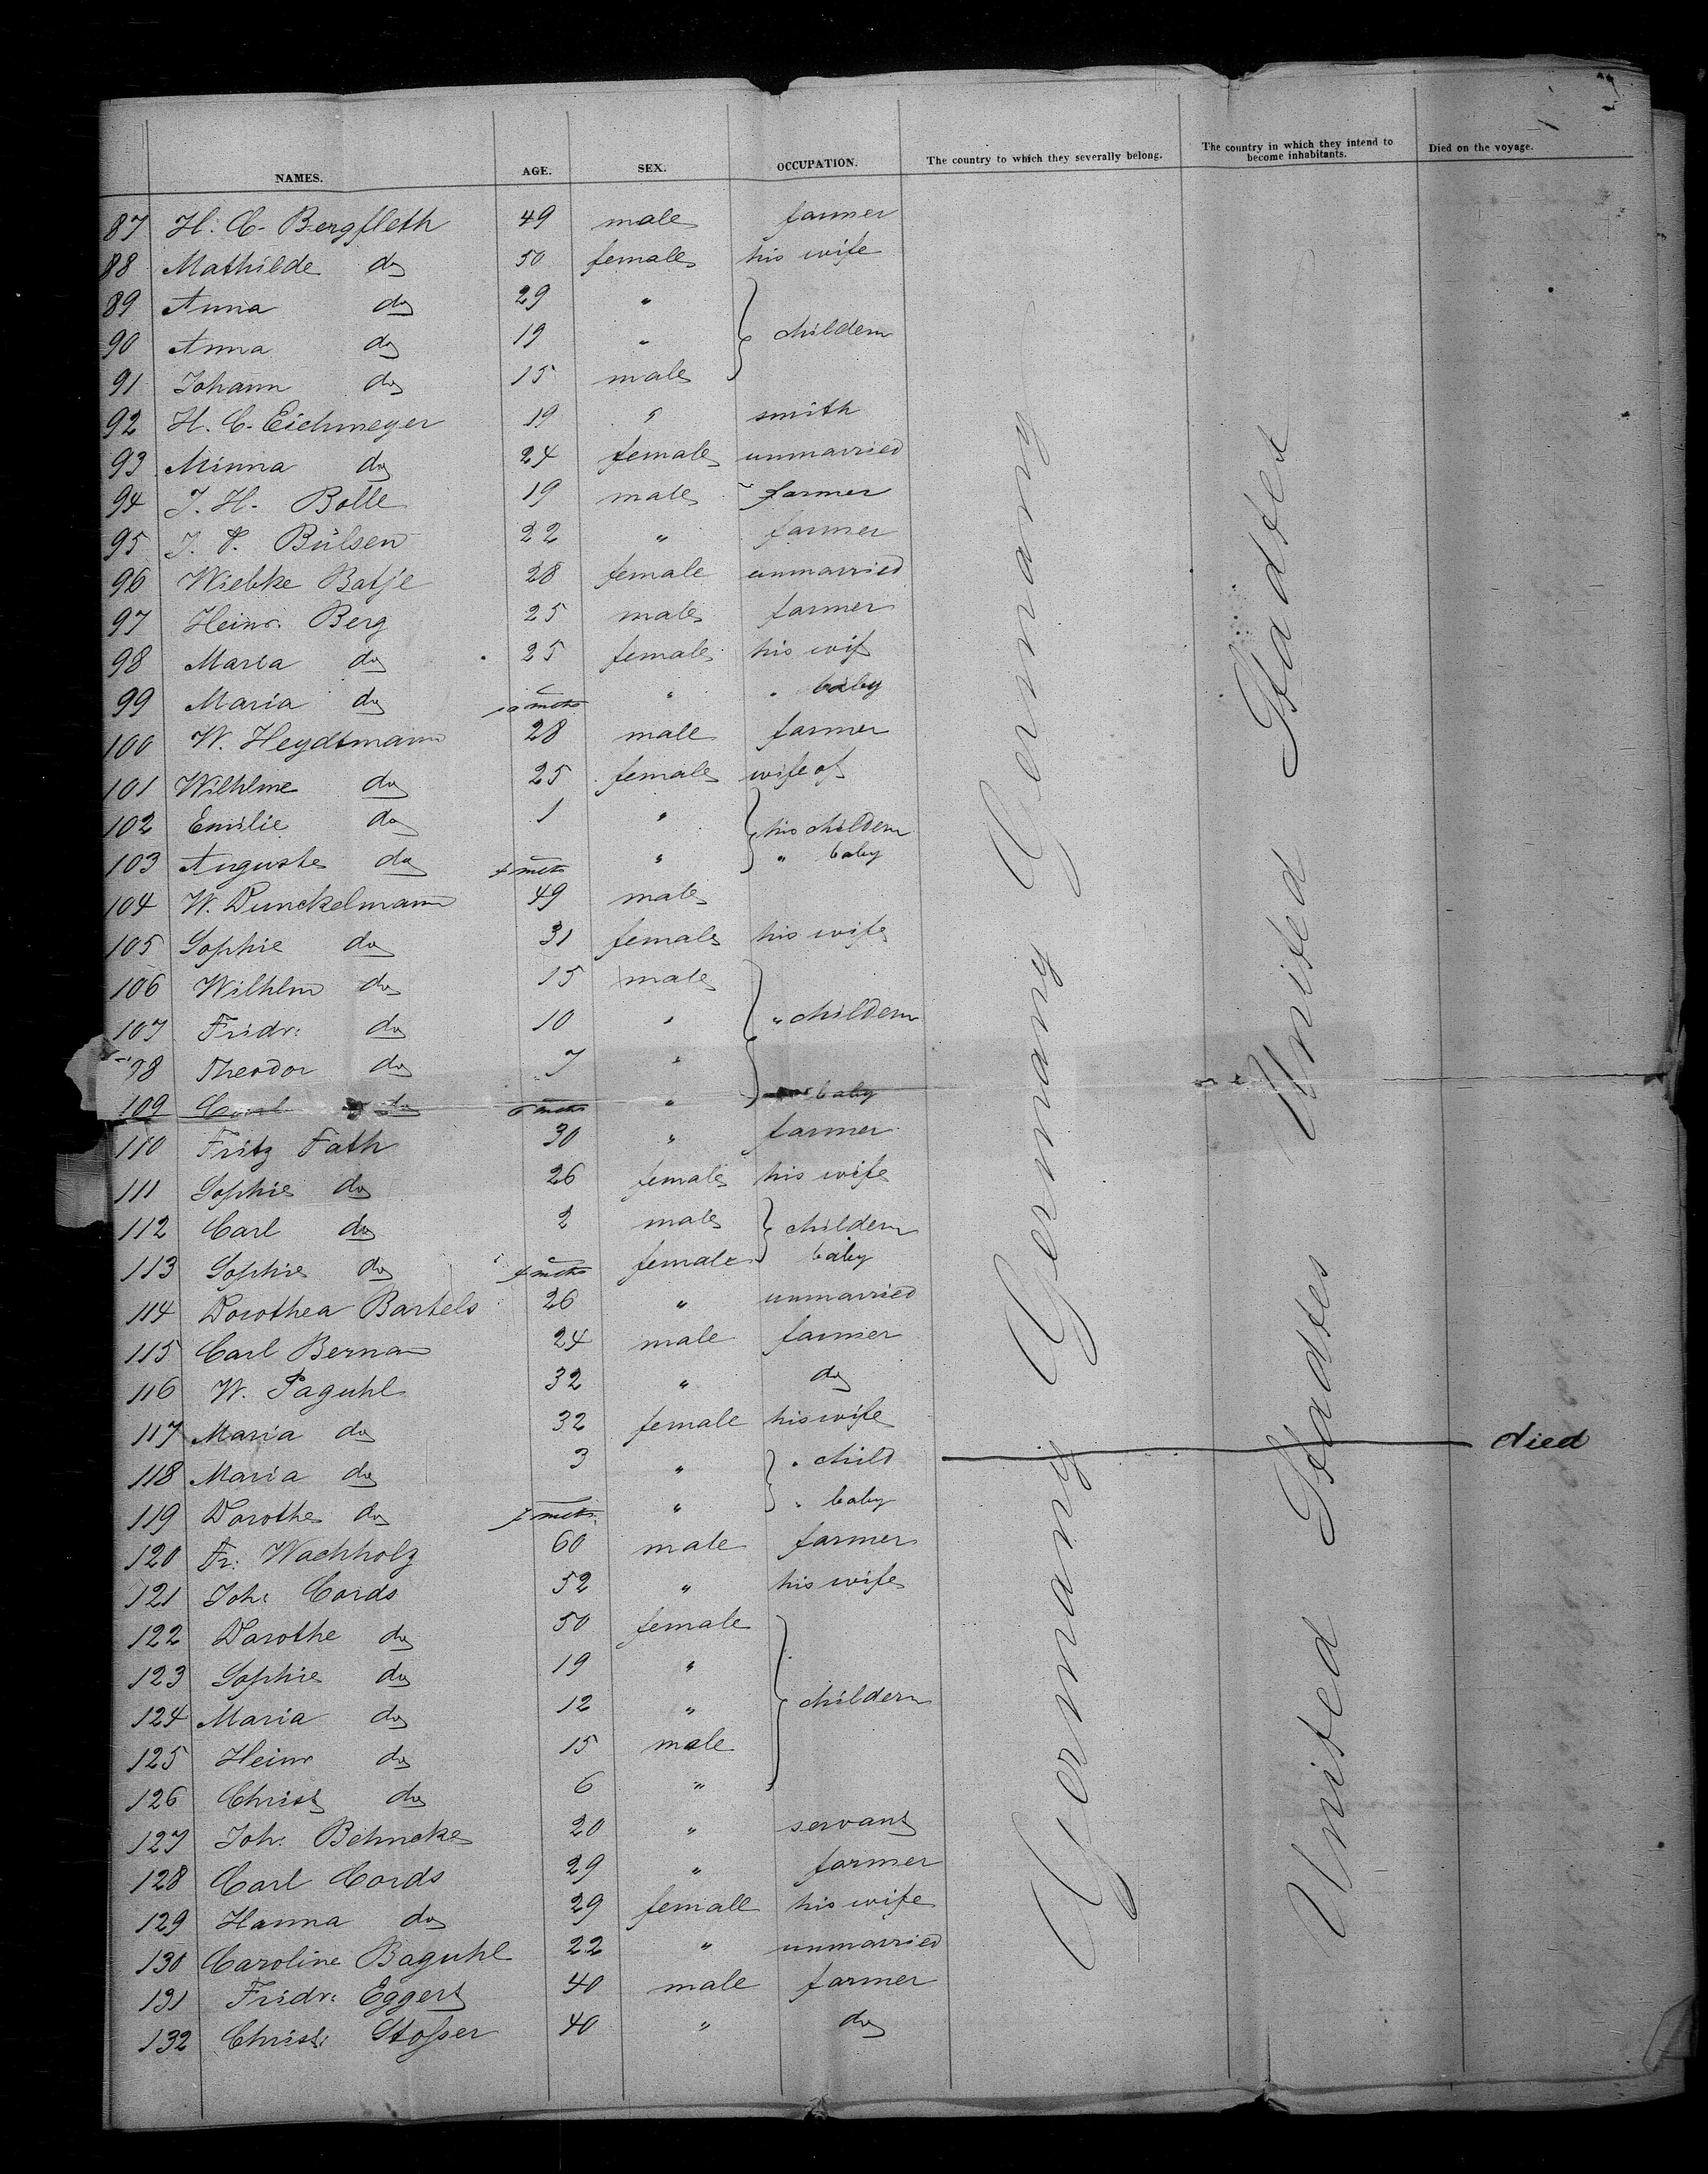 NAMES. AGE. SEX. OCCUPATION. The country to which they severally belong. The country in which they intend to become inhabitants. Died on the voyage.
87 H. C. Bergfleth 49 male farmer
88 Mathilde do 50 female his wife
89 Anna do 29 "
90 Anna do 19 " childern
91 Johann do 15 male
92 H. C. Eichmeyer 19 " smith
93 Minna do 24 female unmarried
94 J. H. Bolle 19 male farmer
95 J. Bülsen 22 " farmer
96 Wiebke Batje 28 female unmarried
97 Heinr. Berg 25 male farmer
98 Maria do 25 female his wif
99 Maria do 10 mths " " baby
100 W. Heydtmann 28 male farmer
101 Wilhlme do 25 female wife of
102 Emilie do 1 " his childern
103 Auguste do mths " " baby
104 W. Dunckelmann 49 male
105 Sophie do 31 female his wife
106 Wilhlm do 15 male
107 Fridr. do 10 " " childern
108 Theodor do 7 "
109 Carl do 6 mths " baby
110 Fritz Fath 30 " farmer
111 Sophie do 26 female his wife
112 Carl do 2 male childern
113 Sophie do mths female baby
114 Dorothea Bartels 26 " unmarried
115 Carl Berna 24 male farmer
116 W. Paguhl 32 " do
117 Maria do 32 female his wife
118 Maria do 3 " " child died
119 Dorothe do mths. " " baby
120 Fr. Wachholz 60 male farmer
121 Joh: Cords 52 " his wife
122 Dorothe do 50 female
123 Sophie do 19 "
124 Maria do 12 " childern
125 Heinr do 15 male
126 Christ do 6 "
127 Joh. Behncke 20 " servant
128 Carl Cords 29 " farmer
129 Hanna do 29 female his wife
130 Caroline Baguhl 22 " unmarried
131 Fridr: Eggert 40 male farmer
132 Christ: Stosser 40 " do
Germany Germany Germany
United States United States